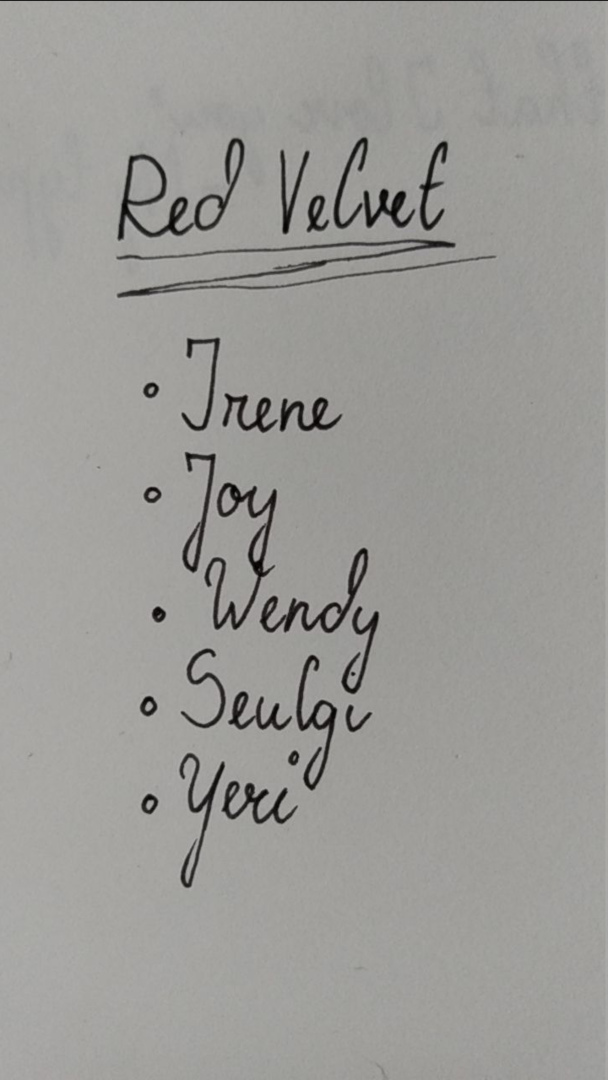 Red Velvet
• Irene
• Joy
• Wendy
• Seulgi
• Yeri